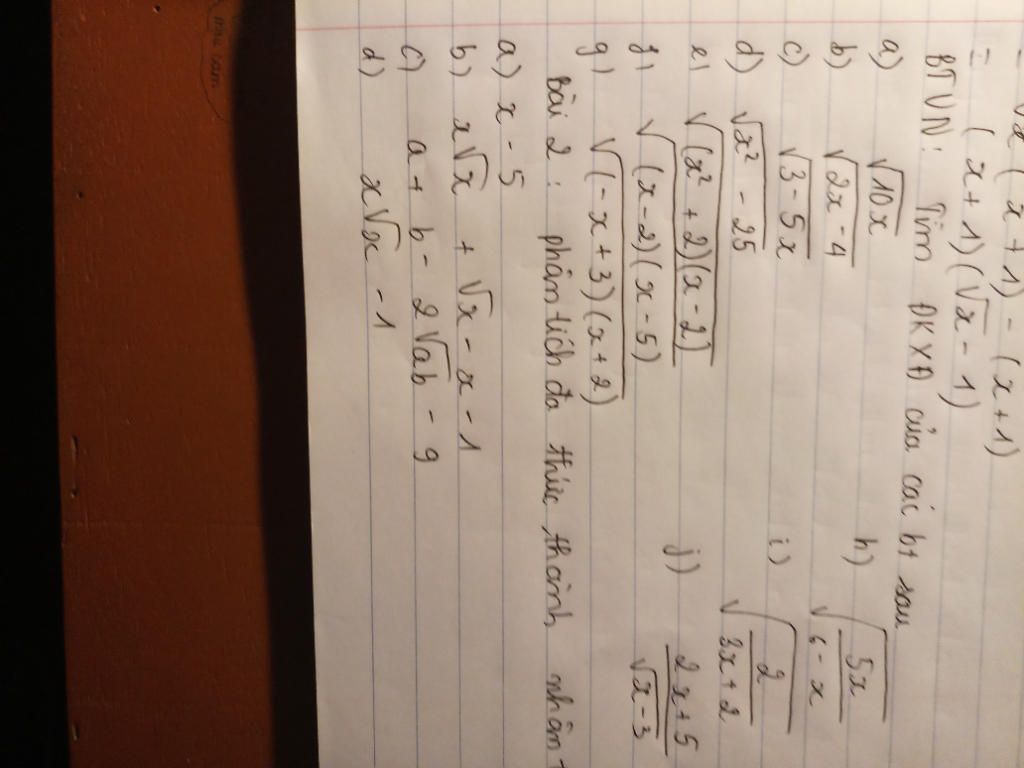 = √x ( x + 1) - (x + 1)
= (x + 1)(√x - 1)
BTVN: Tìm ĐKXĐ của các bt sau
a) √10x
b) √2x - 4
c) √3 - 5x
d) √x² - 25
e) √(x² + 2)(x - 2)
f) √(x - 2)(x - 5)
g) √(-x + 3)(x + 2)
h) √5x/6 - x
i) √2/3x + 2
j) 2x + 5/√x - 3
Bài 2: phân tích đa thức thành nhân
a) x - 5
b) x√x + √x - x - 1
c) a + b - 2√ab - 9
d) x√x - 1